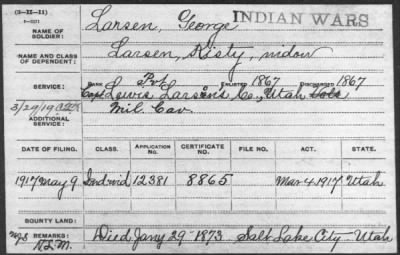 (3-XX-II)
NAME OF SOLDIER: Larsen, George INDIAN WARS
NAME AND CLASS OF DEPENDENT: Larsen, Kisty, widow
SERVICE: RANK Pvt. ENLISTED 1867 DISCHARGED 1867
Capt Lewis Larsens Co., Utah Vols
3/29/19
Mil. Cav
ADDITIONAL SERVICE:
DATE OF FILING. CLASS. APPLICATION NO. CERTIFICATE NO. FILE NO. ACT. STATE.
1917 May 9 Ind wid 12381 8865 Mar 4 1917 Utah
BOUNTY LAND:
REMARKS: Died Jany 29-1873. Salt Lake City - Utah